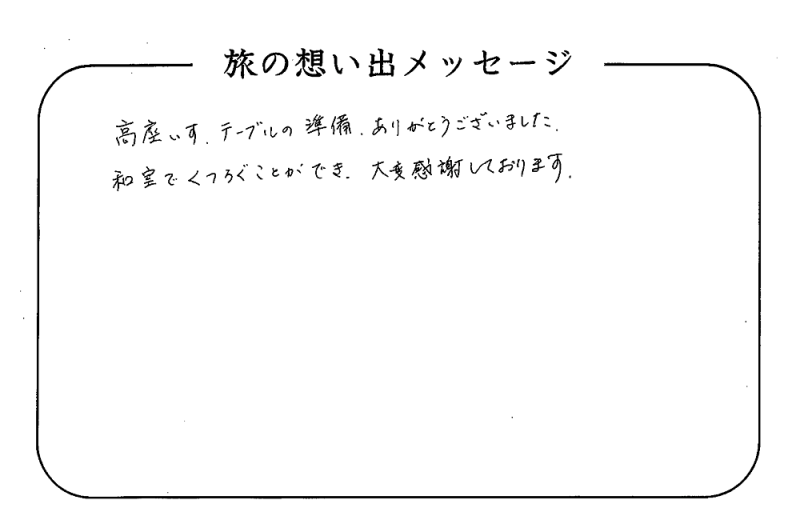 旅の想い出メッセージ
高座いす、テーブルの準備、ありがとうございました。
和室でくつろぐことができ、大変感謝しております。